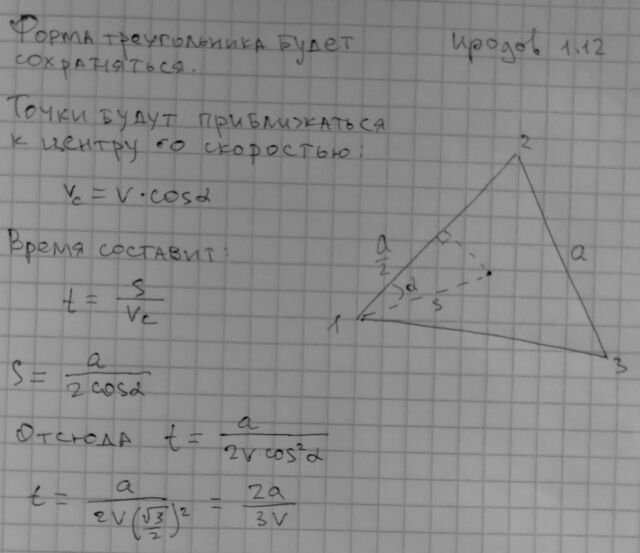 Форма треугольника будет
сохраняться.
Иродов 1.12
Точки будут приближаться
к центру со скоростью:
v_c = v · cosα
Время составит:
t = s / v_c
s = a / (2 cosα)
Отсюда t = a / (2v · cos²α)
t = a / (2v(√3/2)²) = 2a / 3v
2
a/2
a
α
s
1
3